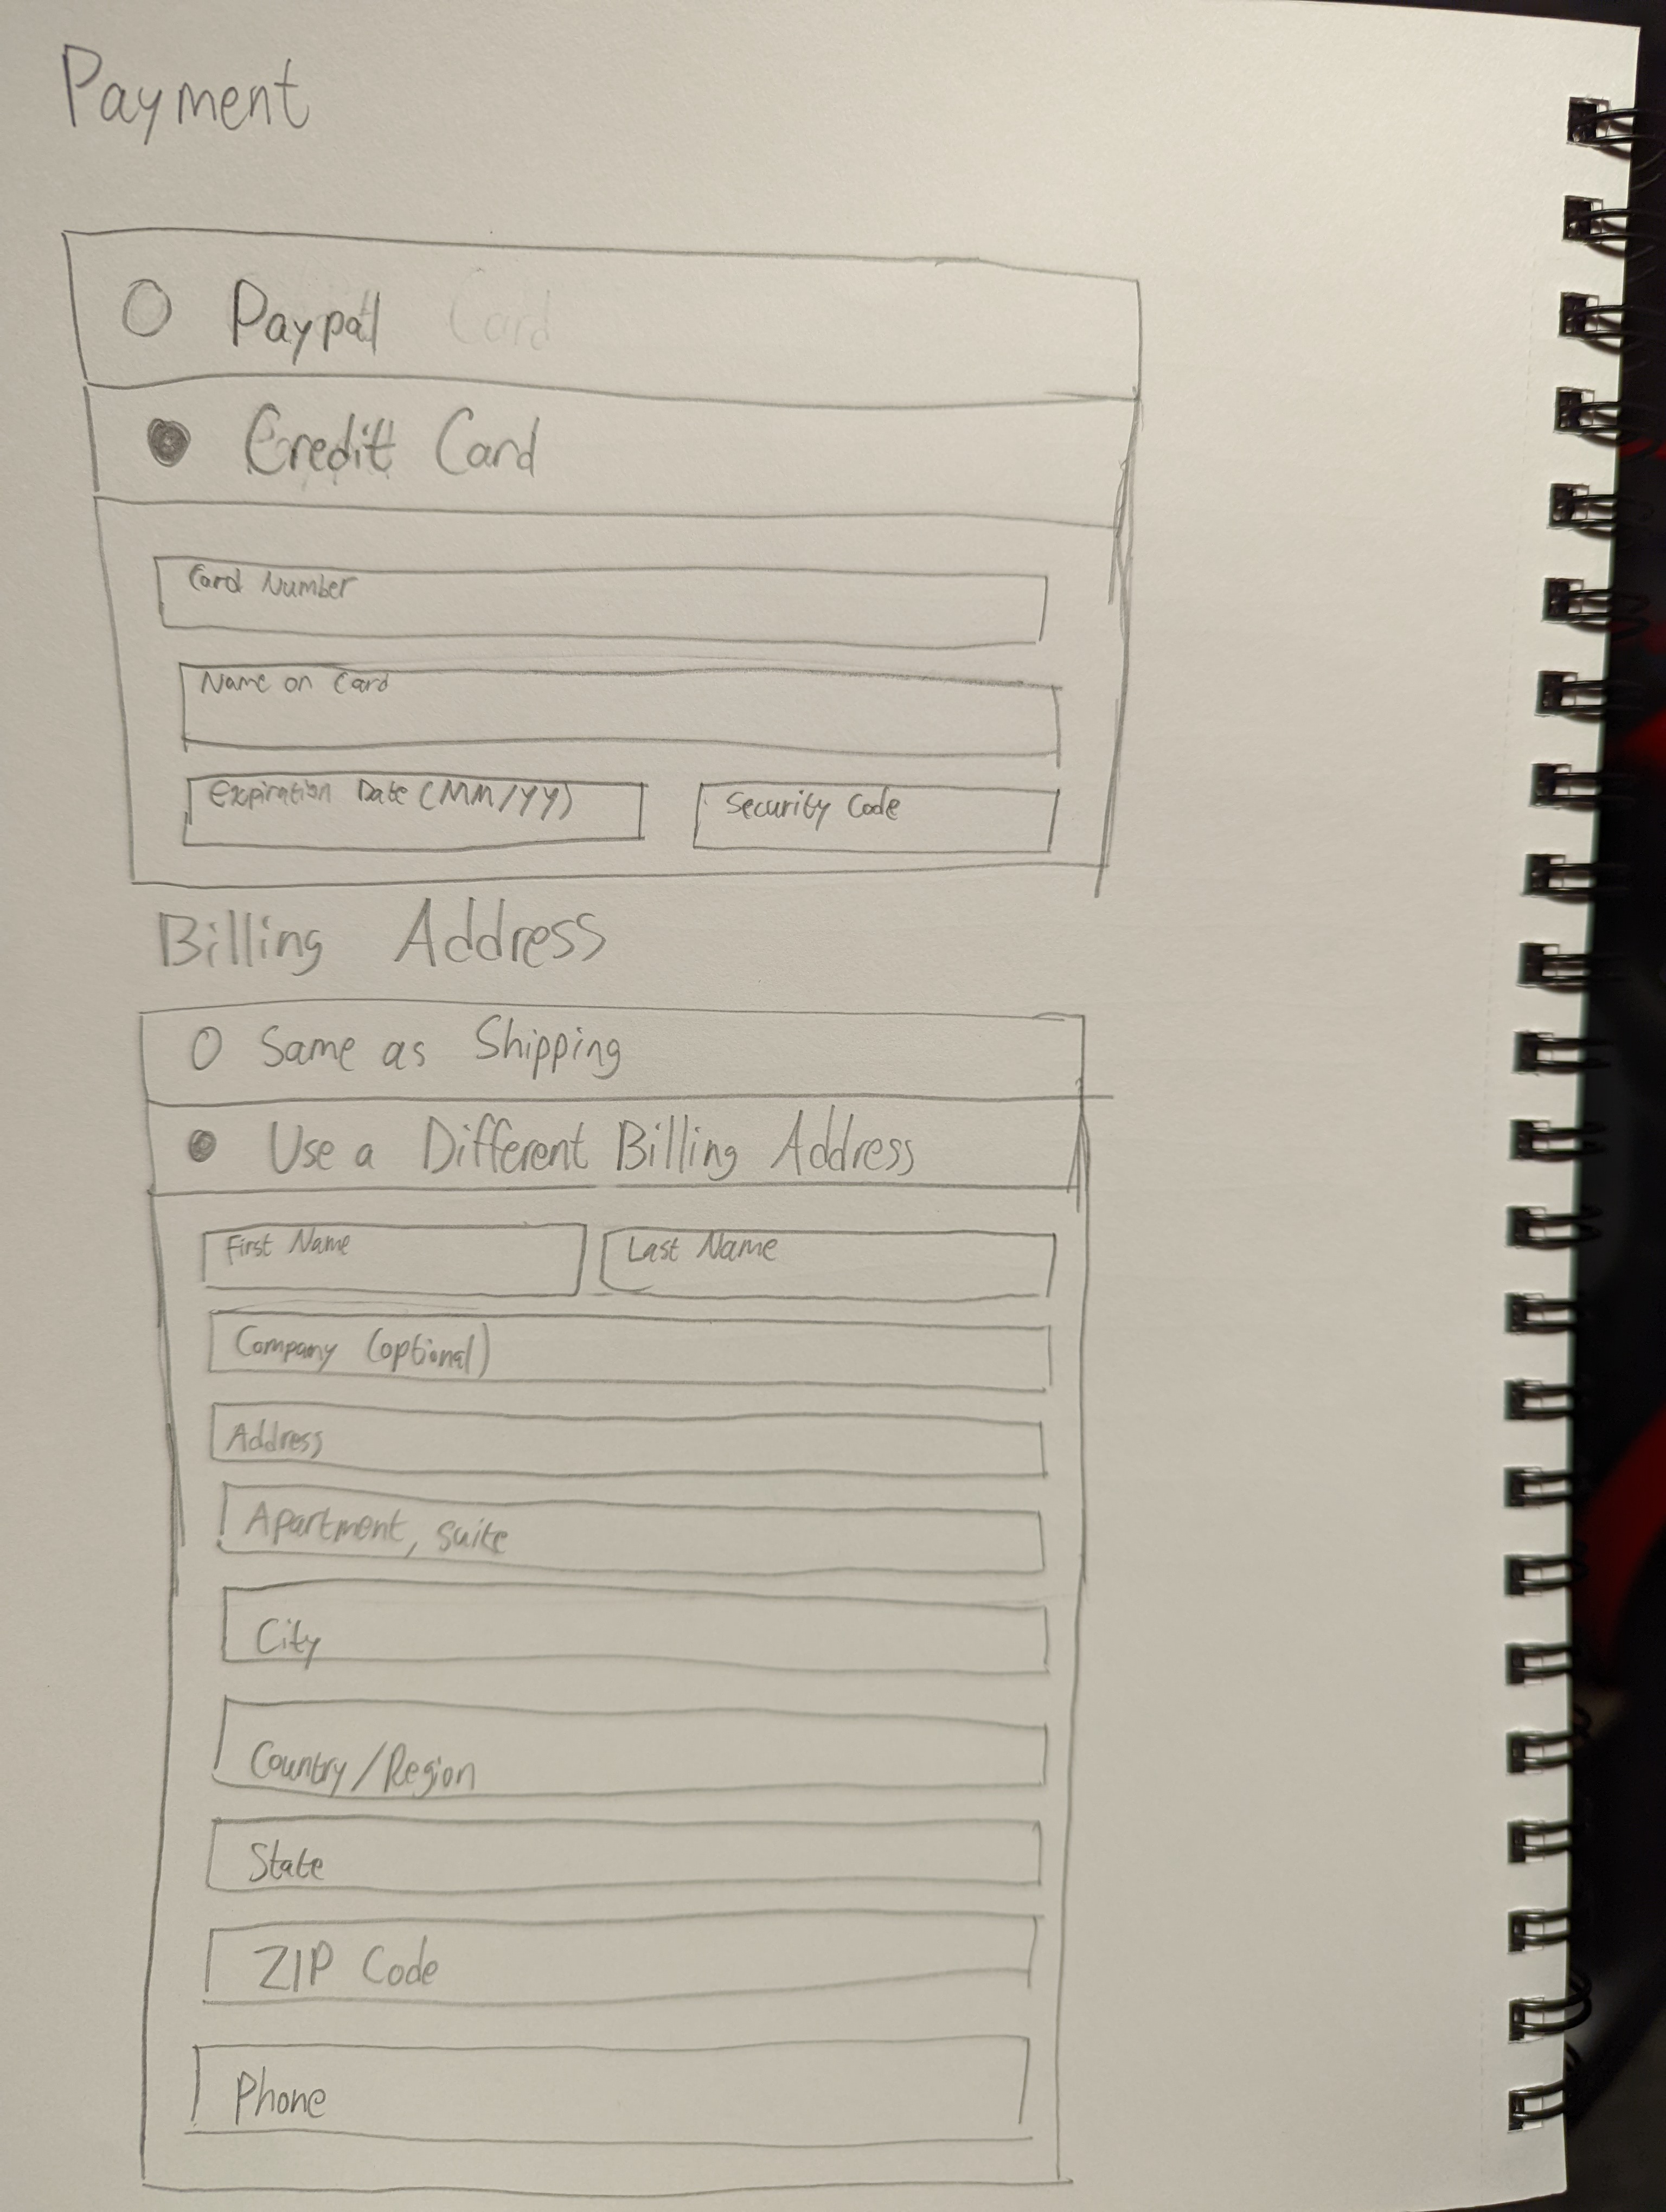 Payment
Paypal Card
Credit Card
Card Number
Name on Card
Expiration Date (MM/YY)
Security Code
Billing Address
Same as Shipping
Use a Different Billing Address
First Name
Last Name
Company (optional)
Address
Apartment, suite
City
Country/Region
State
ZIP Code
Phone